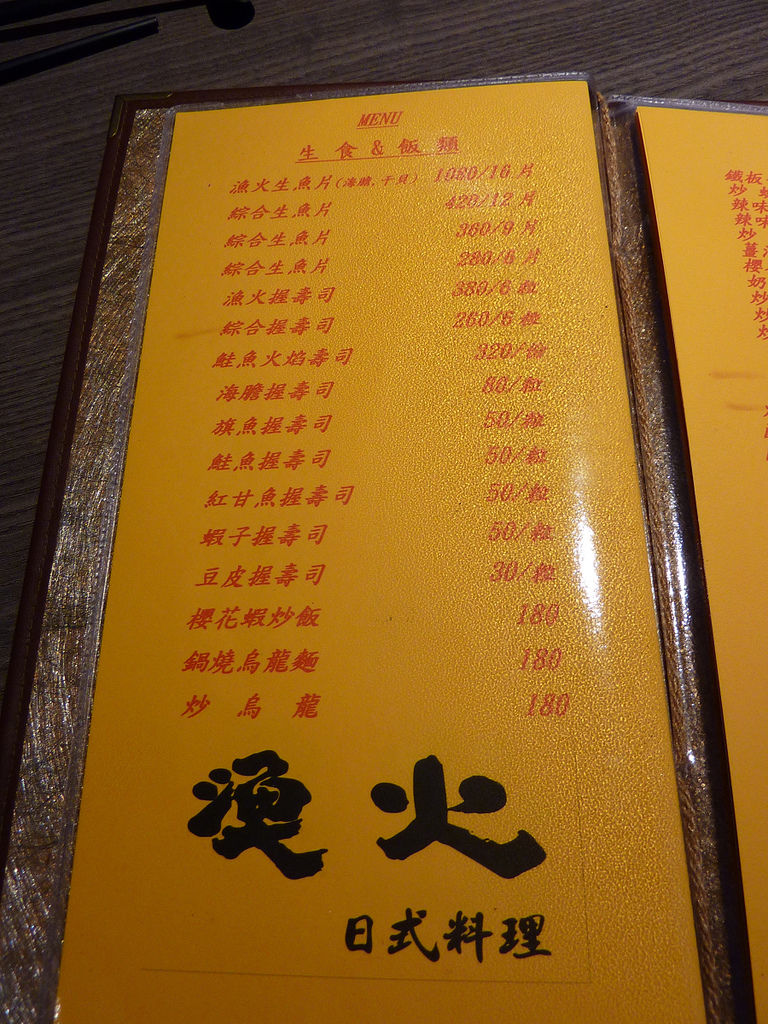 MENU
生食&飯類
漁火生魚片(海膽,干貝) 1080/16片
綜合生魚片 420/12片
綜合生魚片 360/9片
綜合生魚片 280/6片
漁火握壽司 380/6粒
綜合握壽司 260/6粒
鮭魚火焰壽司 320/
海膽握壽司 80/粒
旗魚握壽司 50/粒
鮭魚握壽司 50/粒
紅甘魚握壽司 50/粒
蝦子握壽司 50/粒
豆皮握壽司 30/粒
櫻花蝦炒飯 180
鍋燒烏龍麵 180
炒烏龍 180
漁火
日式料理
鐵板
炒
辣味
辣味
炒
薑
櫻
奶
炒
炒
炒